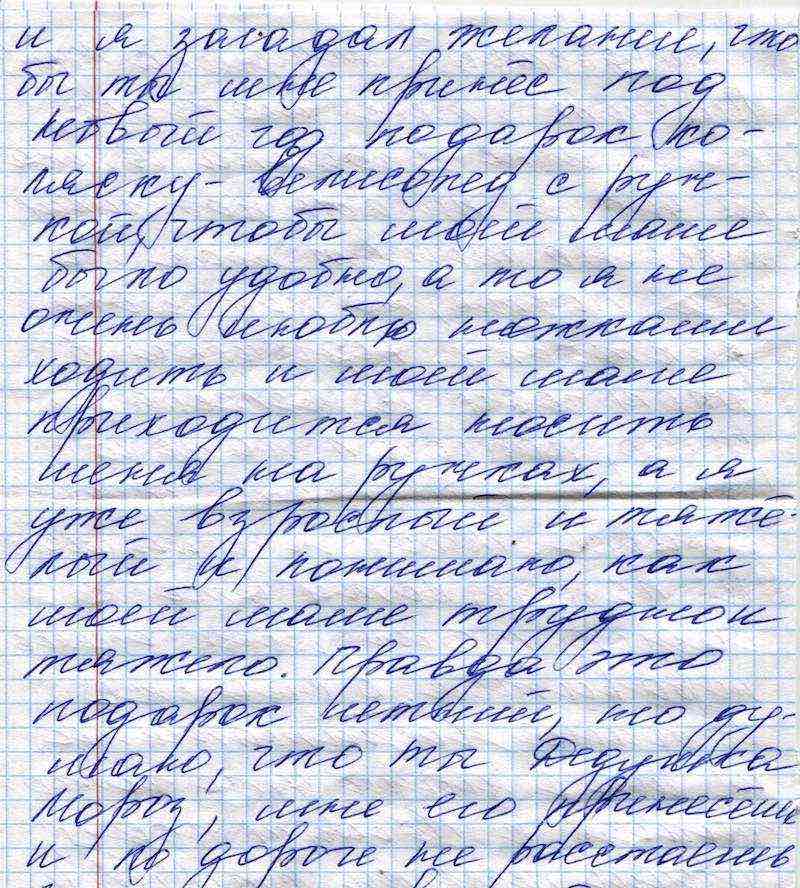 и я загадал желание, что
бы ты мне принёс под
новый год подарок ко-
ляску-велисопед с руч-
кой, чтобы моей маме
было удобно, а то я не
очень люблю ножками
ходить и моей маме
приходится носить
меня на ручках, а я
уже взрослый и тяжё-
лый и понимаю, как
моей маме трудно и
тяжело. Правда это
подарок летний, но ду-
маю, что ты Дедушка
Мороз, мне его принесёшь
и по дороге не расстаешь